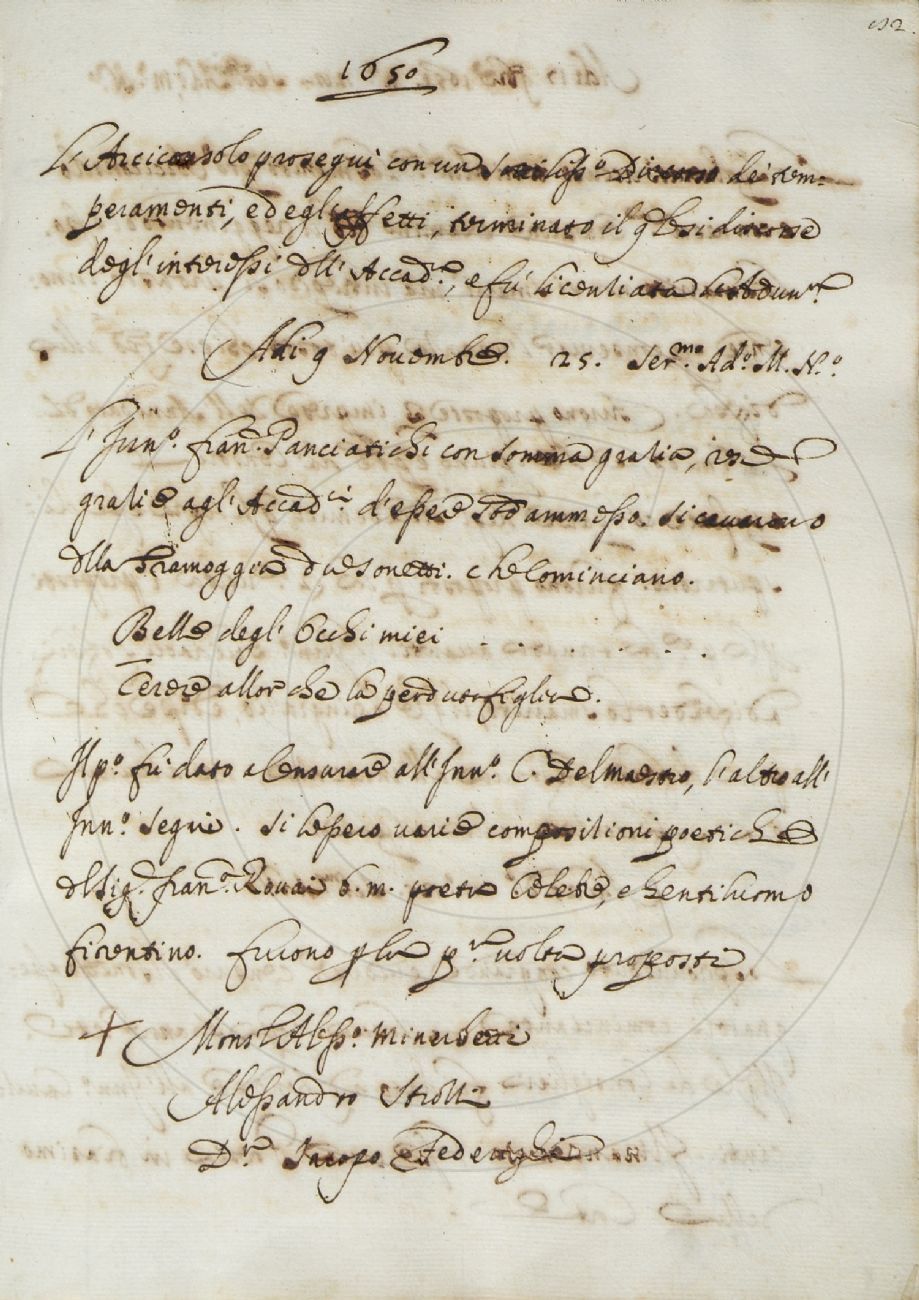 192.
1650
L'Arciconsolo proseguì con un Discorso dei tem=
peramenti, ed egl' affetti, terminato il q^le si discorse
degl' interessi dll' Accad.^a, e fù licentiata l'Adun.^a
Adi 9 Novembre. 25. Ser.^mo Ad.^o M. N.^o
L'Inn.^o Fran.^o Panciatichi con somma gratia, rende
gratie agl' Accad.^ci d'essere ammesso. Si cavarono
dlla Tramoggia due sonetti. che Cominciano.
Belle degl' Occhi miei . . . . . .
Cerere allor che la perduta figlia.
Il p.^o fù dato a Censurare all' Inn.^o C. Del maestro, l'altro all'
Inn.^o Segni. Si lessero varie compositioni poetiche
del Sig.^r Fran.^o Rovai b. m. poeta Celebre, e Gentilhuomo
fiorentino. Furono p la p.^a volta proposti
+ Mons.^r Aless.^o Minerbetti
Alessandro Strozzi
D.^r Jacopo Federighi